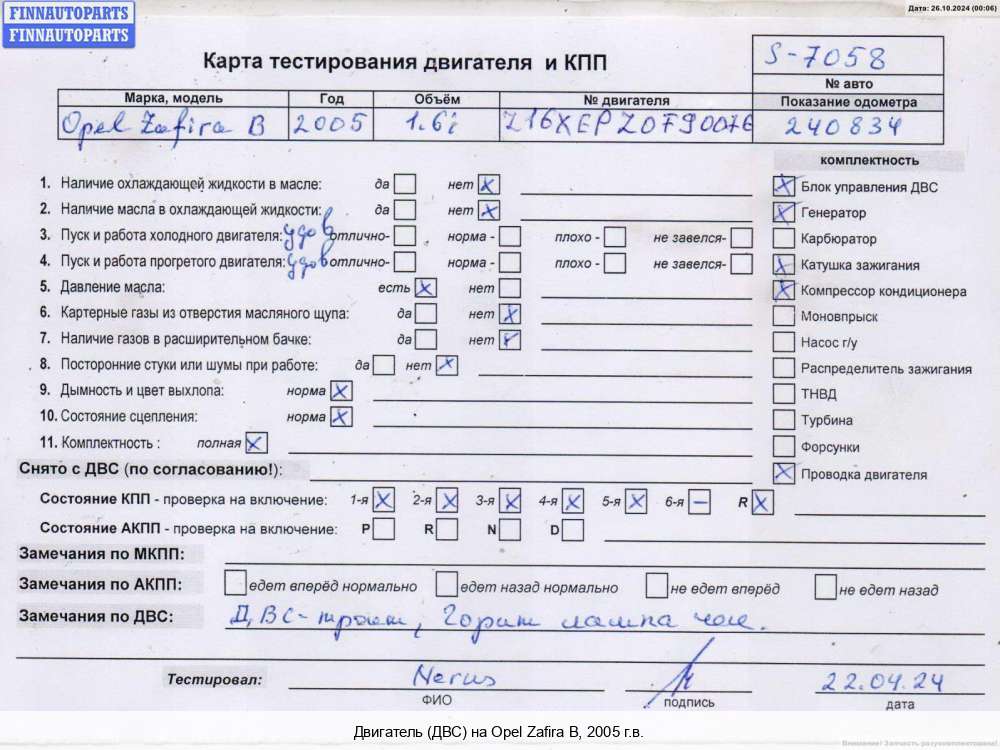 FINNAUTOPARTS
FINNAUTOPARTS
Дата: 26.10.2024 (00:06)
Карта тестирования двигателя и КПП
S-7058
№ авто
Марка, модель Год Объём № двигателя Показание одометра
Opel Zafira B 2005 1.6i Z16XEP Z0F90076 240834
комплектность
1. Наличие охлаждающей жидкости в масле: да нет X
Блок управления ДВС
2. Наличие масла в охлаждающей жидкости: да нет X
Генератор
3. Пуск и работа холодного двигателя: удов отлично- норма - плохо - не завелся-
Карбюратор
4. Пуск и работа прогретого двигателя: удов отлично- норма - плохо - не завелся-
Катушка зажигания
5. Давление масла: есть X нет
Компрессор кондиционера
6. Картерные газы из отверстия масляного щупа: да нет X
Моновпрыск
7. Наличие газов в расширительном бачке: да нет
Насос г/у
8. Посторонние стуки или шумы при работе: да нет X
Распределитель зажигания
9. Дымность и цвет выхлопа: норма X
ТНВД
10. Состояние сцепления: норма X
Турбина
11. Комплектность : полная X
Форсунки
Снято с ДВС (по согласованию!):
Проводка двигателя
Состояние КПП - проверка на включение: 1-я X 2-я X 3-я X 4-я X 5-я X 6-я – R X
Состояние АКПП - проверка на включение: P R N D
Замечания по МКПП:
Замечания по АКПП: едет вперёд нормально едет назад нормально не едет вперёд не едет назад
Замечания по ДВС: ДВС-троит, Горит лампа чек.
Тестировал: Nerus 22.04.24
ФИО подпись дата
Двигатель (ДВС) на Opel Zafira B, 2005 г.в.
Внимание! Запчасть разукомплектована!